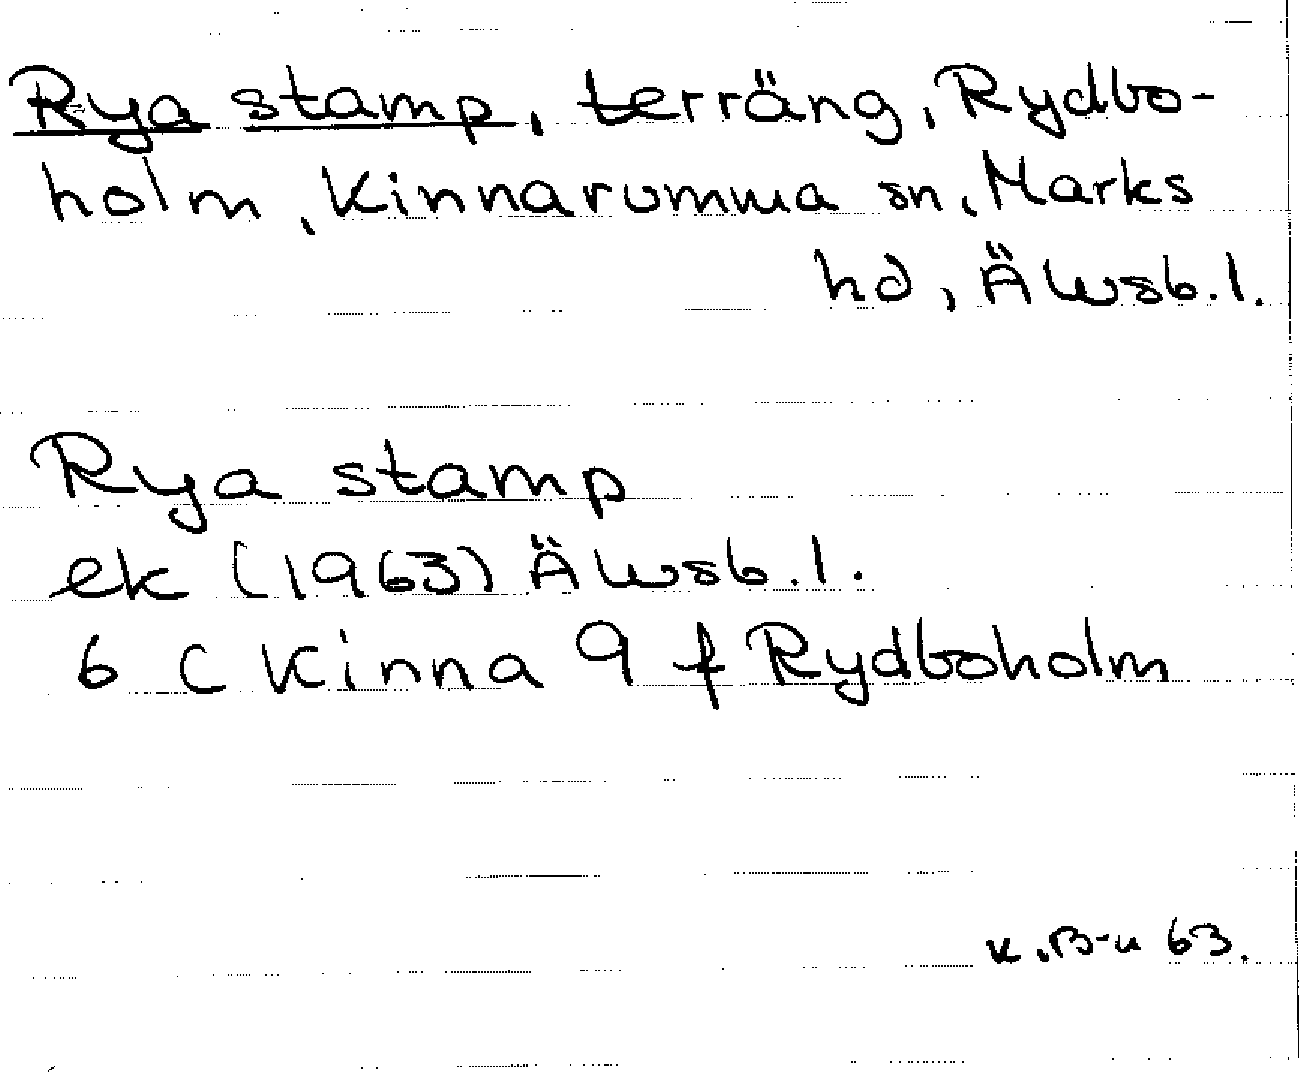 Rya stamp, terräng, Rydbo-
holm, Kinnarumma sn, Marks
hd, Älvsb.l.
Rya stamp
ek (1963) Älvsb.l.
6 C Kinna 9 f Rydboholm
K.B-n 63.